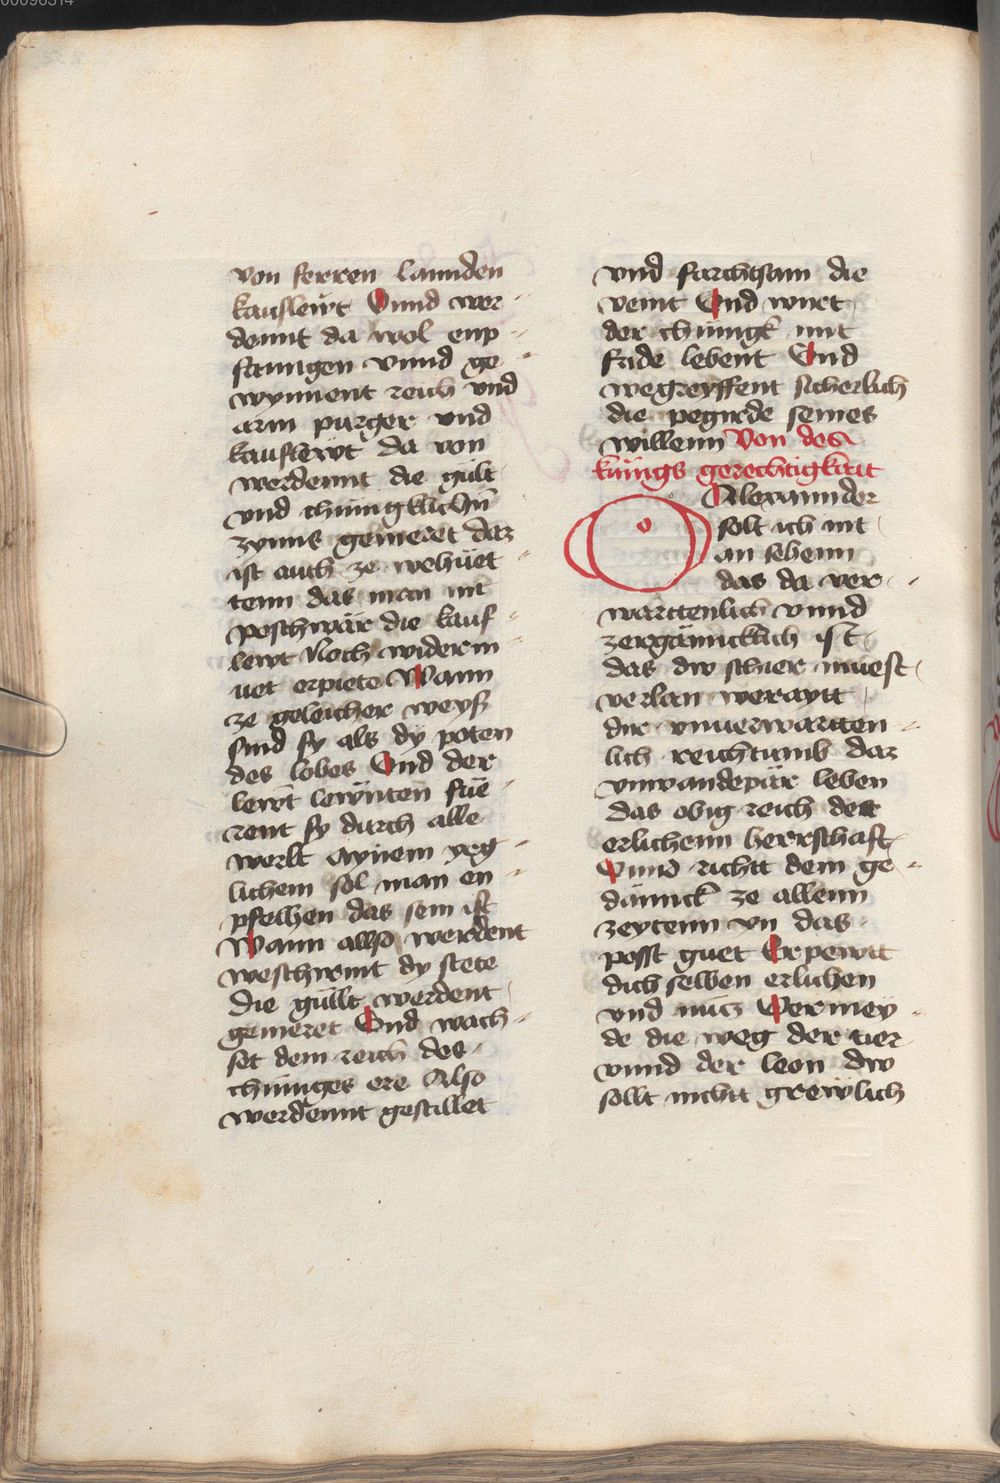 von ferren lannden
kauflewt Vnnd wer-
dennt da wol enp-
fanngen vnnd ge-
wynnent reich vnd
arm purger vnd
kauflewt da von
werdennt die gult
vnd chunigklichn̄
zynns gemeret daz
ist auch ze wehüet-
tenn das man nit
poschwär die kauf-
lewt Noch widerm
uet erpiete Wann
ze geleicher weyß
sind sy als dy poten
des lobes Vnd der
lewt lewnten fūe-
rent sy durch alle
werlt Aynem yeg-
lichem sol man en-
pfelhen das sein ist
Wann allso werdent
weschirmt dy stete
die güllt werdent
gemeret Vnd wach-
set dem reich des
chuniges ere Also
werdennt gestillet
vnd farchtsam die
veint Vnd wirt
der chünigk mit
fride lebent Vnd
wegreyffent sicherlich
die pegirde seines
willenn Von des
künigs gerechtigkait
O Alexannder
solt ich nit
an sehenn
das da ver-
warttenlich vnnd
zergännicklich ist
das dw schier muest
verlan weraytt
dir vnuerwartten-
lich reichtumb daz
vnwandepär leben
das obig reich der
erlichenn herrschaft
Vnnd richtt dem ge-
dännck ze allenn
zeytenn vn das
posst guet Erpewtt
dich selben erlichen
vnd nucz Vermey-
de die weg der tier
vnnd der leon dw
sollt nichtt grewlich